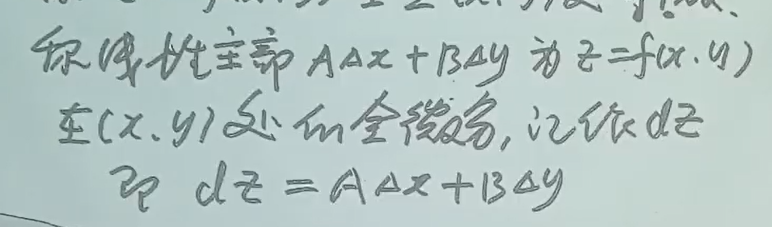 称线性主部 AΔx+BΔy 为 z=f(x.y)
在(x.y)处的全微分,记作dz
即 dz=AΔx+BΔy